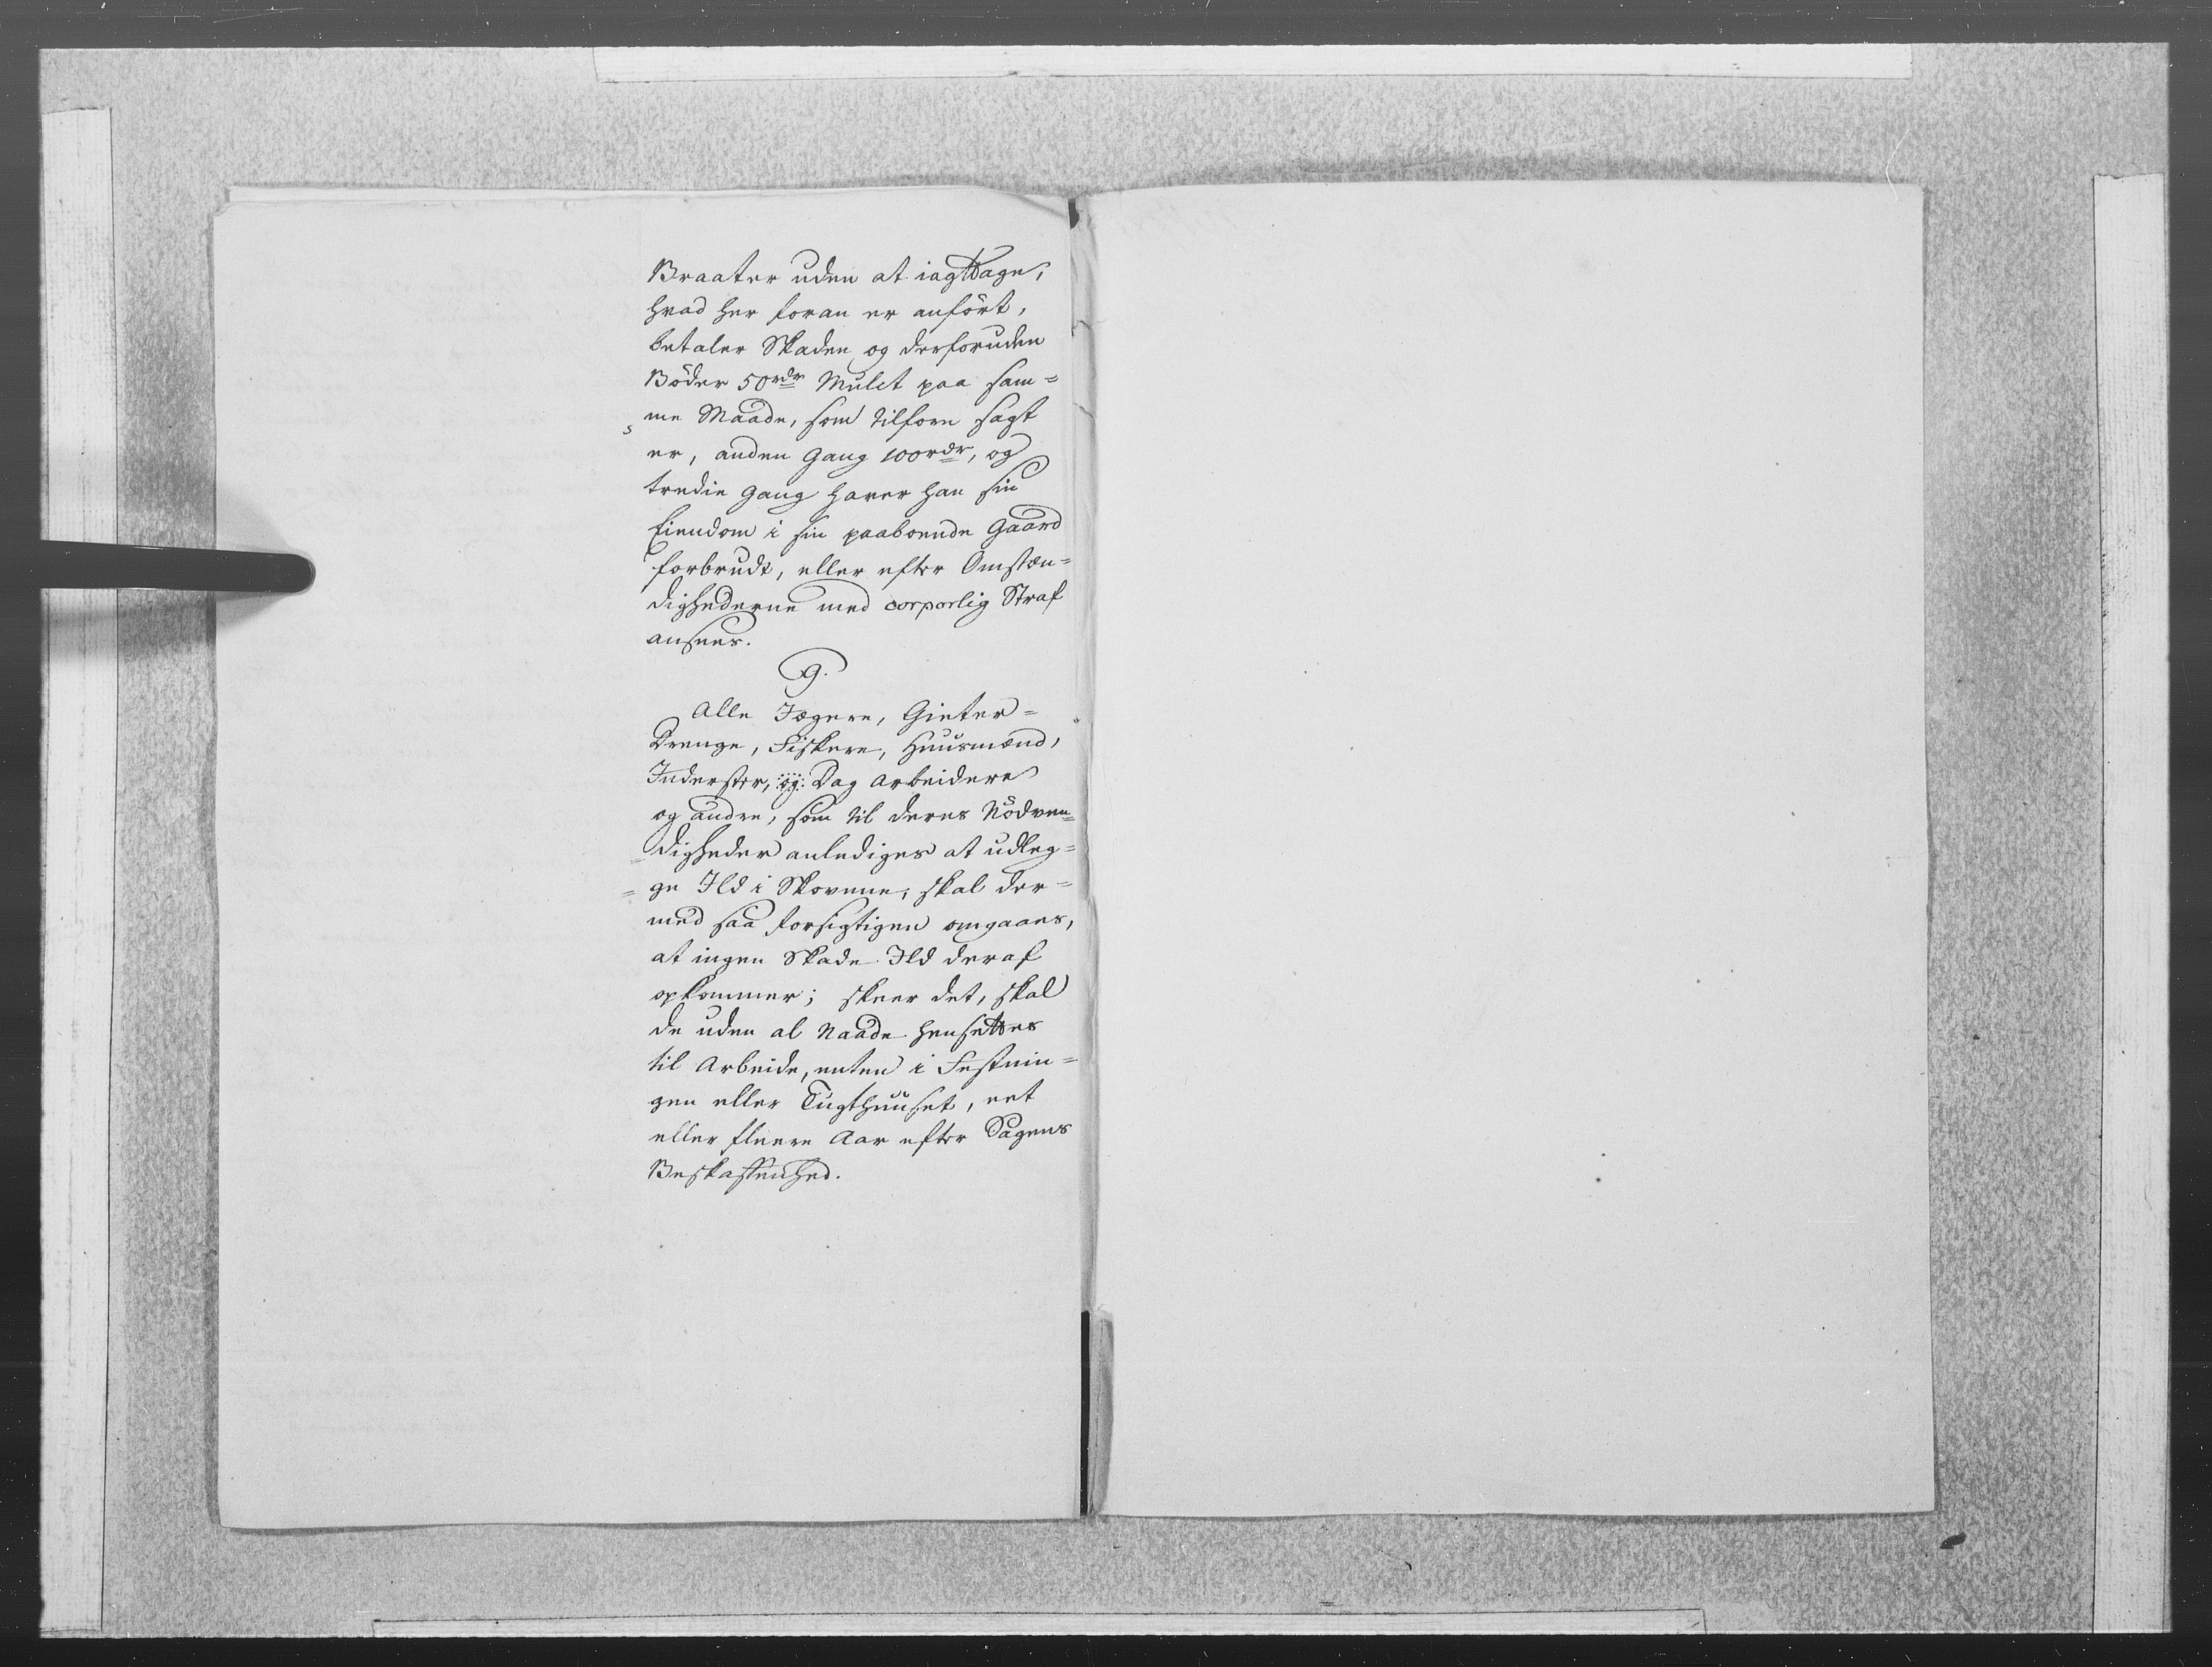 Braater uden at iagttage,
hvad her foran er anført,
betaler Skaden og derforuden
Böder 50 rdr Mulct paa sam=
me Maade, som tilforn sagt
er, anden Gang 100 rdr, og
tredie Gang haver han sin
Eiendom i sin paaboende Gaard
forbrudt, eller efter Omstæn=
dighederne med corporlig Straf
ansees.
9.
Alle Jægere, Gieter=
Drenge, Fiskere, Huusmænd,
Inderster, og Dag Arbeidere
og andre, som til deres Nödven=
digheder anlediges at udleg=
ge Ild i Skovene, skal der=
med saa forsigtigen omgaaes,
at ingen Skade Ild deraf
opkommer; skeer det, skal
de uden al Naade hensettes
til Arbeide, enten i Festnin=
gen eller Tugthuuset, eet
eller fleere Aar efter Sagens
Beskaffenhed.